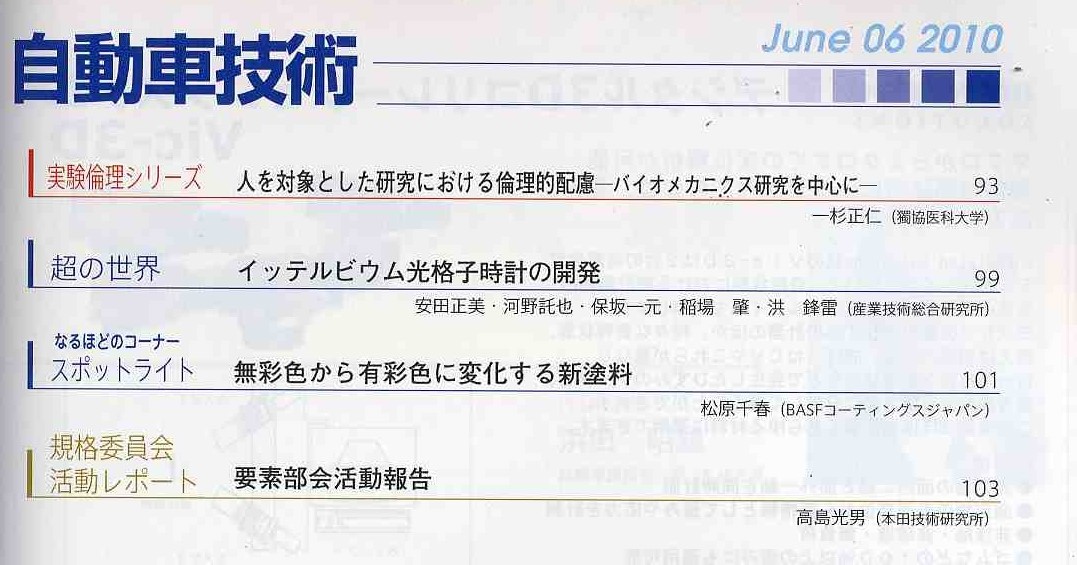 自動車技術
June 06 2010
実験倫理シリーズ 人を対象とした研究における倫理的配慮―バイオメカニクス研究を中心に― 93
一杉正仁（獨協医科大学）
超の世界 イッテルビウム光格子時計の開発 99
安田正美・河野託也・保坂一元・稲場 肇・洪 鋒雷（産業技術総合研究所）
なるほどのコーナー
スポットライト 無彩色から有彩色に変化する新塗料 101
松原千春（BASFコーティングスジャパン）
規格委員会
活動レポート 要素部会活動報告 103
高島光男（本田技術研究所）